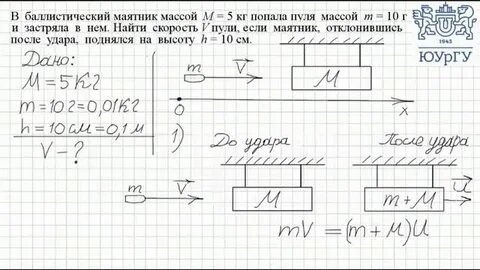 В баллистический маятник массой M = 5 кг попала пуля массой m = 10 г
и застряла в нем. Найти скорость V пули, если маятник, отклонившись
после удара, поднялся на высоту h = 10 см.
1943
ЮУрГУ
Дано:
M = 5 кг
m = 10 г = 0,01 кг
h = 10 см = 0,1 м
V - ?
m V
M
O x
1) До удара После удара
m V
M
m + M U
mV = (m + M)U